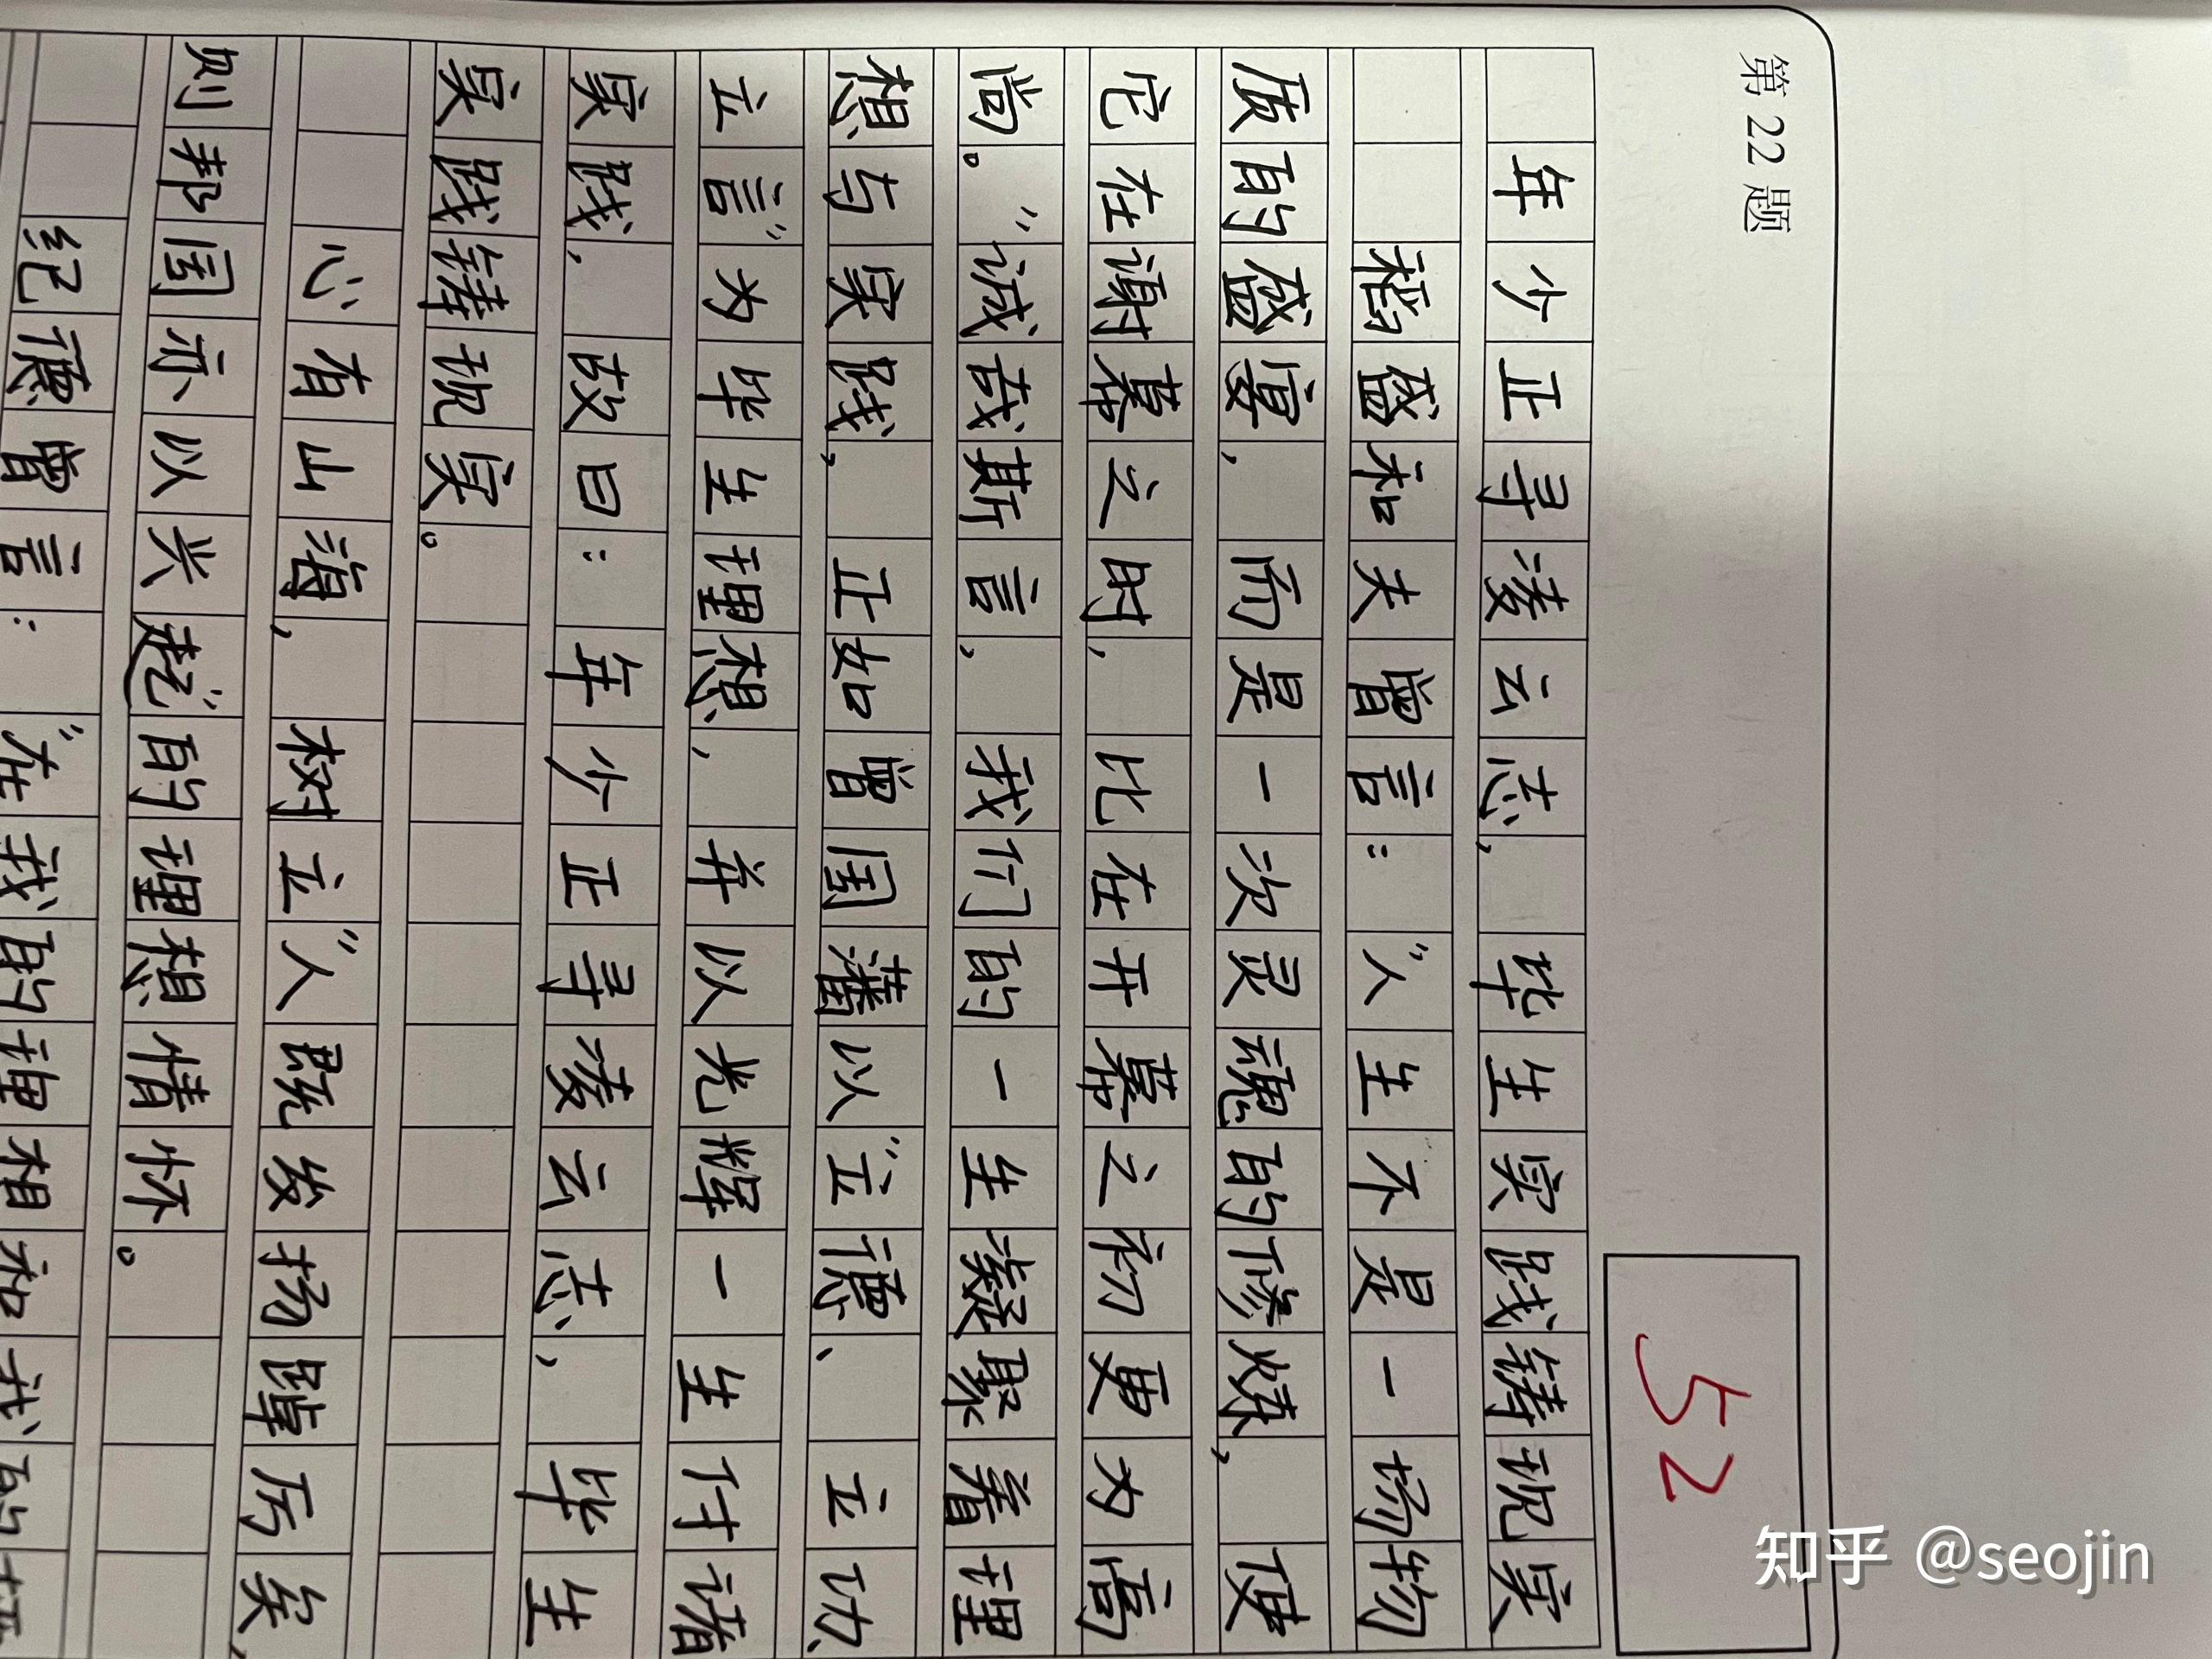 第22题
52
年少正寻凌云志，毕生实践铸现实
稻盛和夫曾言：“人生不是一场物
质的盛宴，而是一次灵魂的修炼，使
它在谢幕之时，比在开幕之初更为高
尚。”诚哉斯言，我们的一生凝聚着理
想与实践，正如曾国藩以“立德、立功、
立言”为毕生理想，并以光辉一生付诸
实践，故曰：年少正寻凌云志，毕生
实践铸现实。
心有山海，树立“人既发扬踔厉矣，
则邦国亦以兴起”的理想情怀。
纪德曾言：“在我的理想和我的
知乎 @seojin